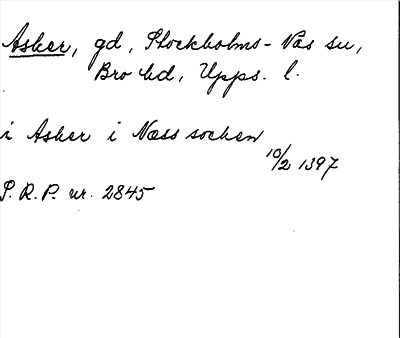 Asker, gd, Stockholms-Näs sn,
Bro hd, Upps. l.
i Asker i Næss sochen
10/2 1397
S.R.P. nr. 2845